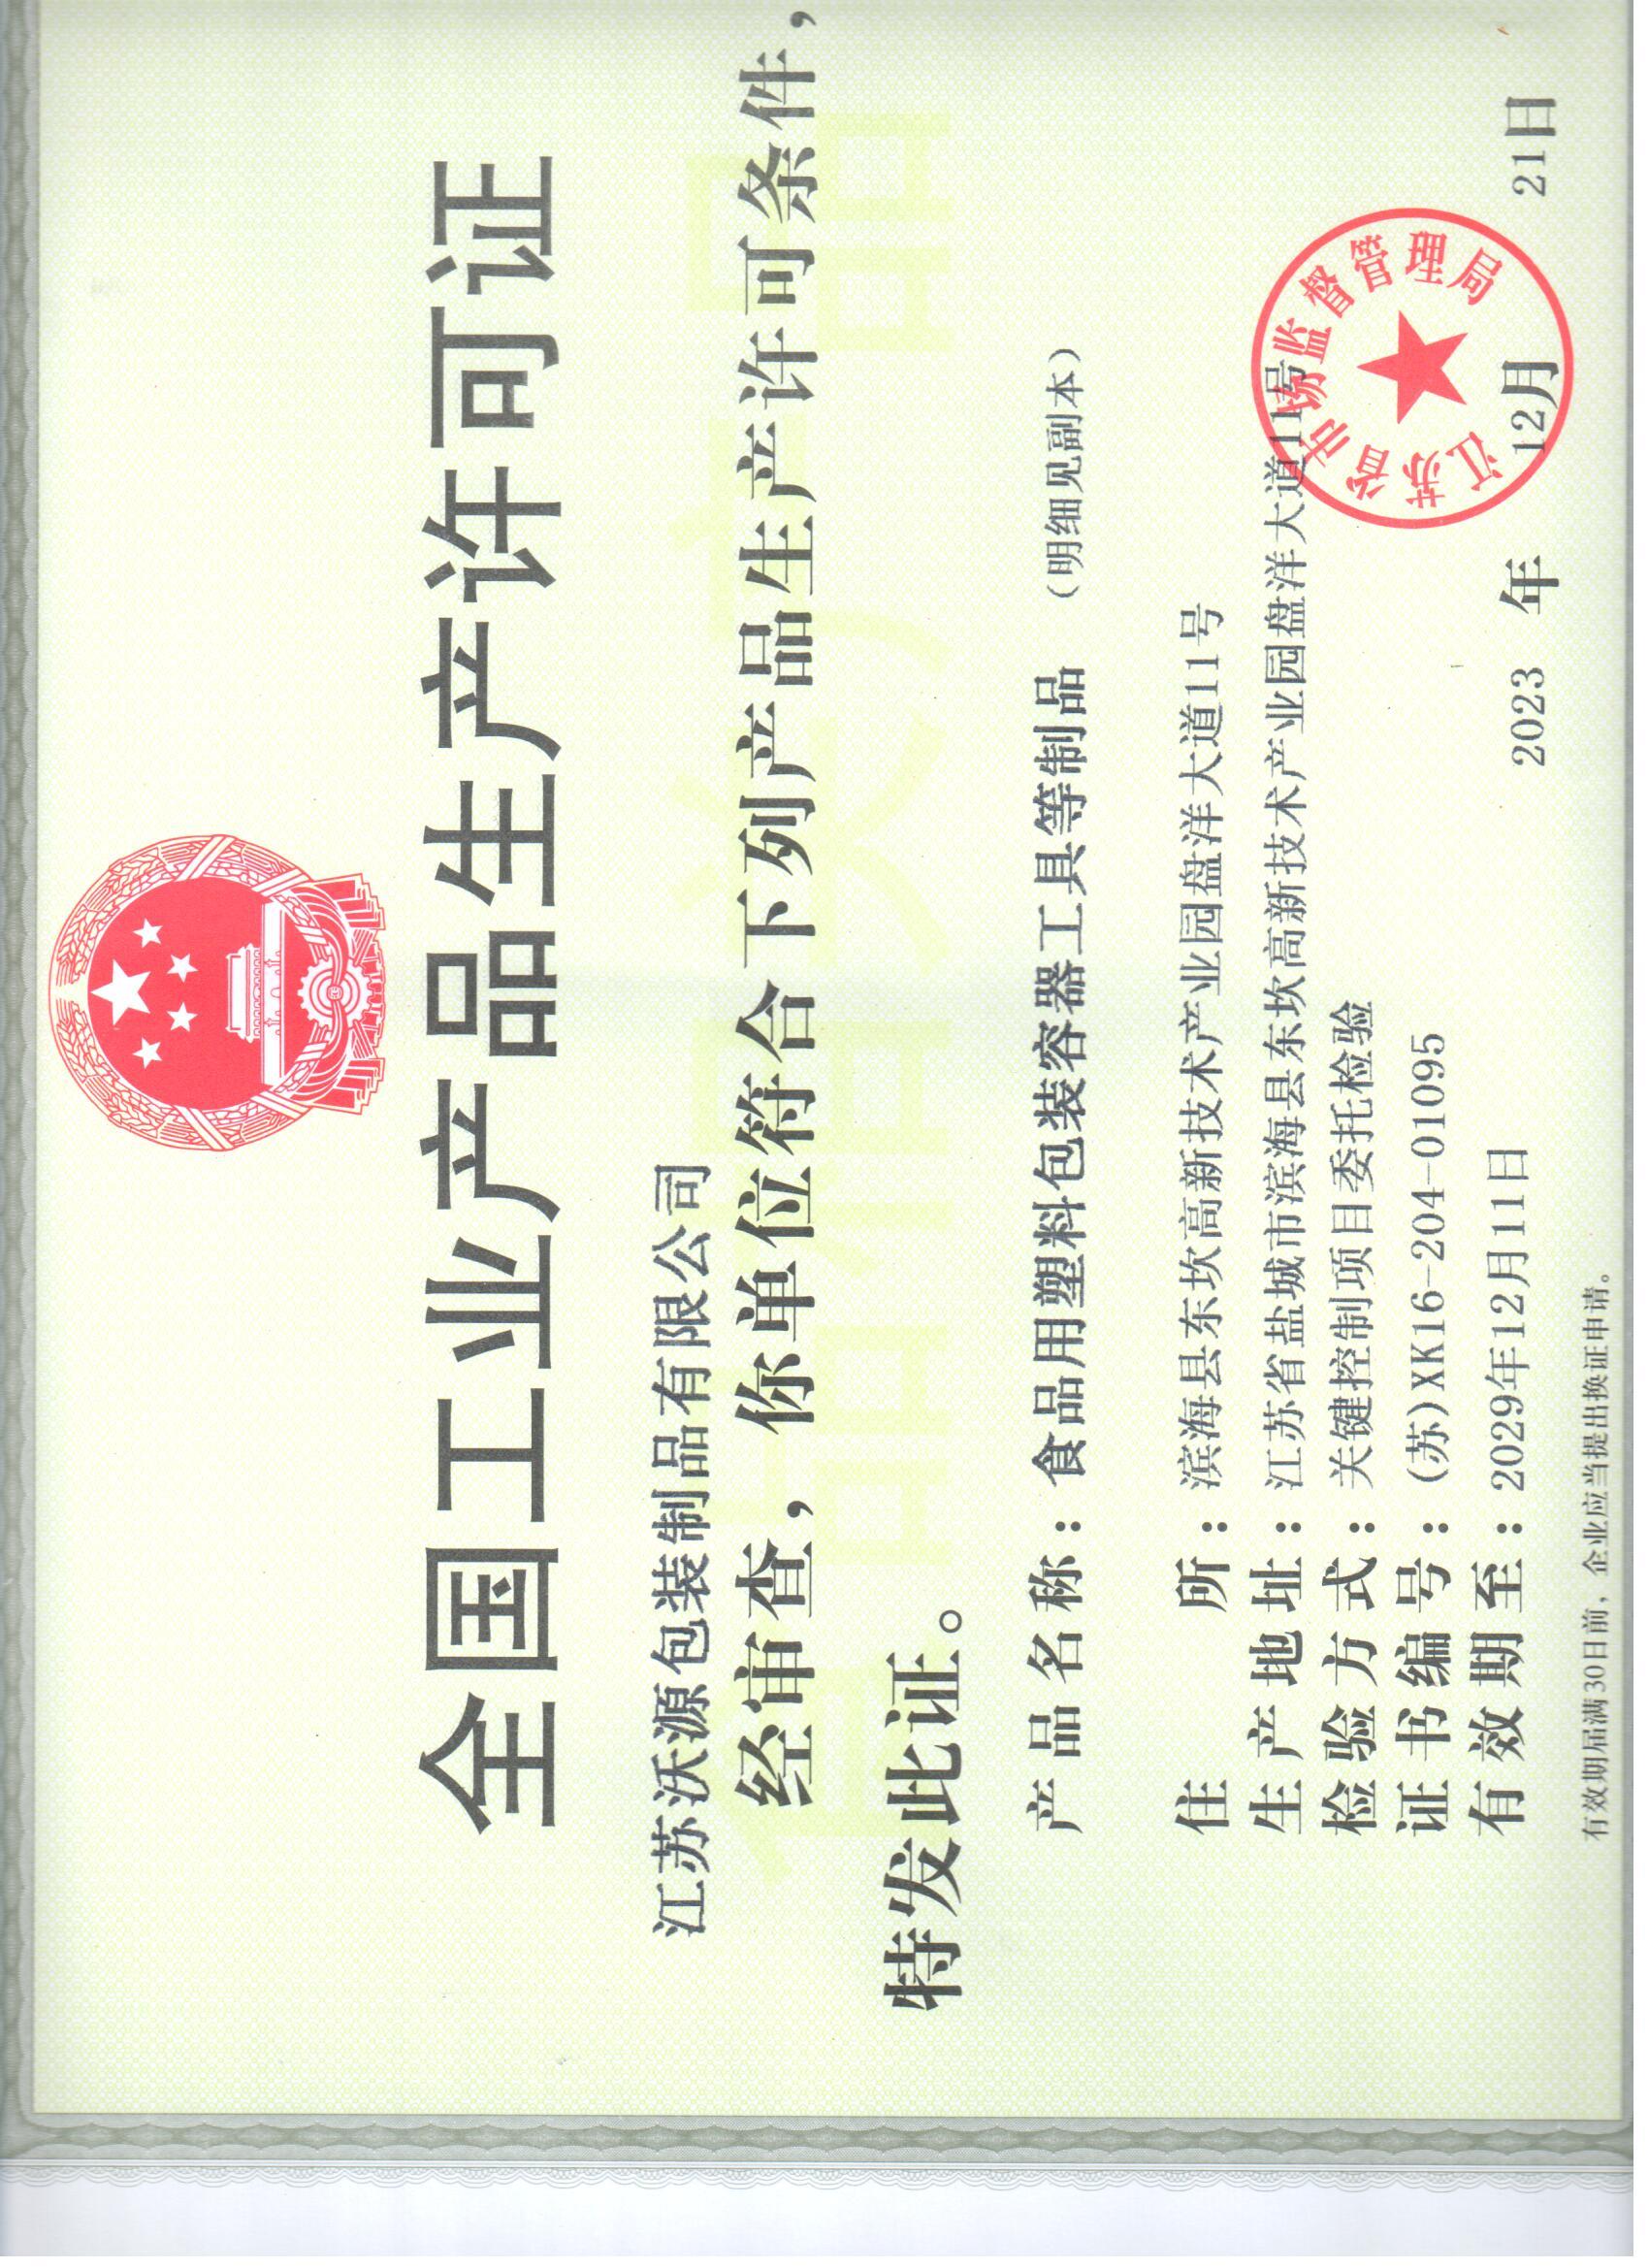 全国工业产品生产许可证
江苏沃源包装制品有限公司
经审查，你单位符合下列产品生产许可条件，
特发此证。
产品名称：食品用塑料包装容器工具等制品 （明细见副本）
住 所：滨海县东坎高新技术产业园盘洋大道11号
生产地址：江苏省盐城市滨海县东坎高新技术产业园盘洋大道11号
检验方式：关键控制项目委托检验
证书编号：(苏)XK16-204-01095
有效期至：2029年12月11日
江苏省市场监督管理局
2023 年 12月 21日
有效期届满30日前，企业应当提出换证申请。